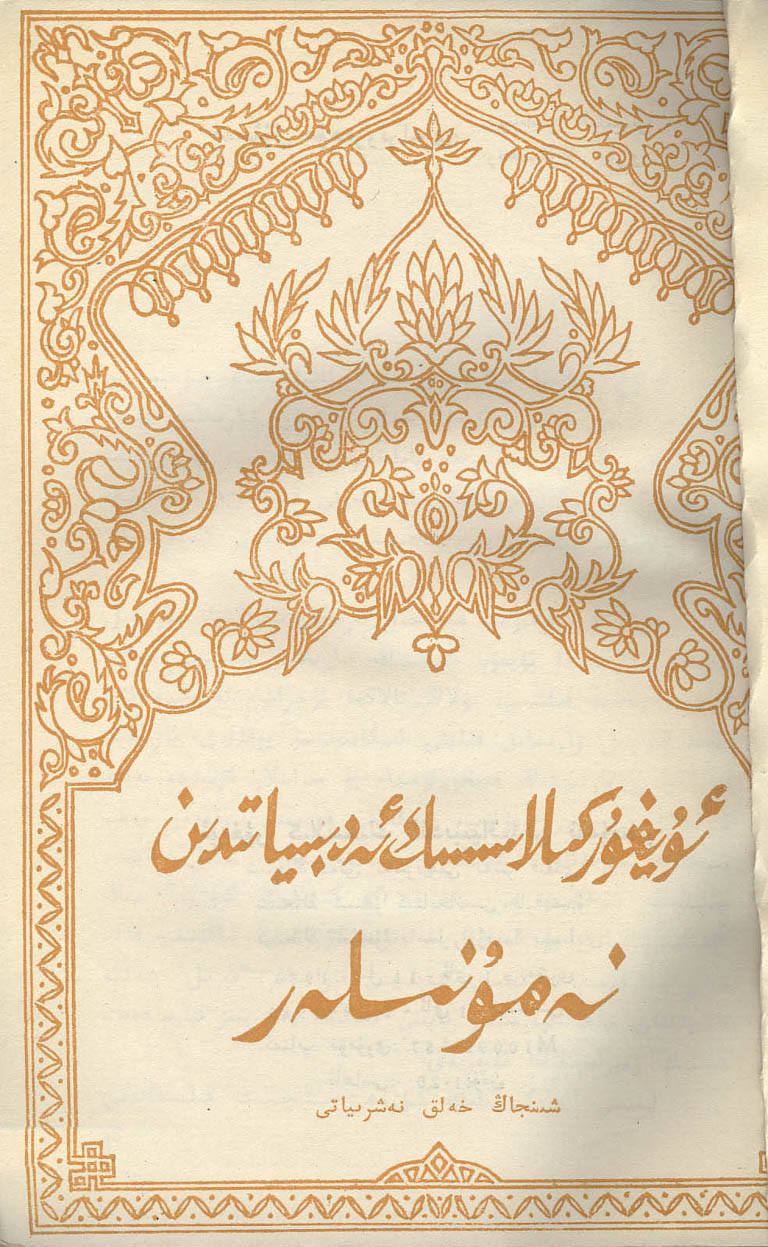 ئۇيغۇر كىلاسسىك ئەدەبىياتىدىن
نەمۇنىلەر
شىنجاڭ خەلق نەشرىياتى